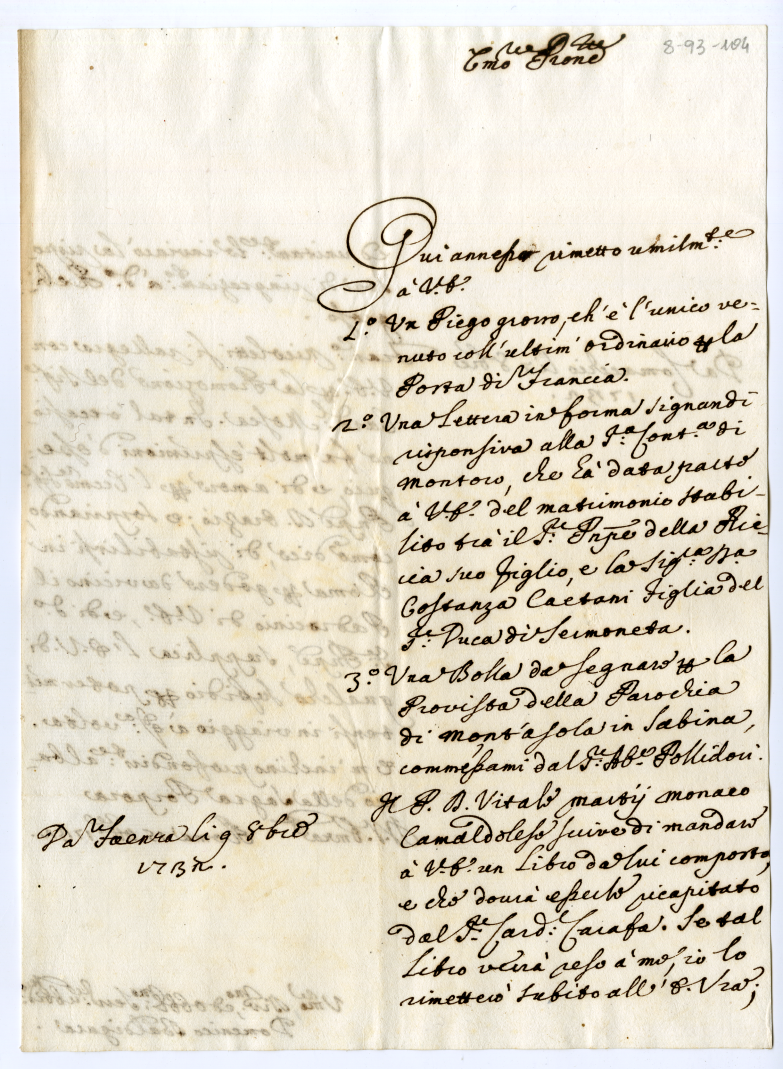 8-93-104
Emo Prone
Qui annesso rimetto umilm.te
à V.E.
1.º Un Piego grosso, ch'è l'unico ve=
nuto coll'ultim'ordinario la
Posta di Francia.
2.º Una Lettera in forma signandi
risponsiva alla S.ª Cont.ª di
Montoro, che hà data parte
à V.E. del matrimonio stabi-
lito trà il S.r Pnpe della Ric-
cia suo figlio, e la Sig.ra
Costanza Caetani figlia del
S.r Duca di Sermoneta.
3.º Una Bolla da segnare la
Provista della Parochia
di Mont'asola in Sabina,
commessami dal S.r Ab.e Pollidori.
Il P. D. Vitale martij monaco
Camaldolese scrive di mandare
à V.E. un Libro da lui composto,
e che dovrà esserle ricapitato
dal S.r Card.l Carafa. Se tal
Libro verrà reso à me, io lo
rimetterò subito all'E. Vra;
Da Faenza li 9 8bre
1732.